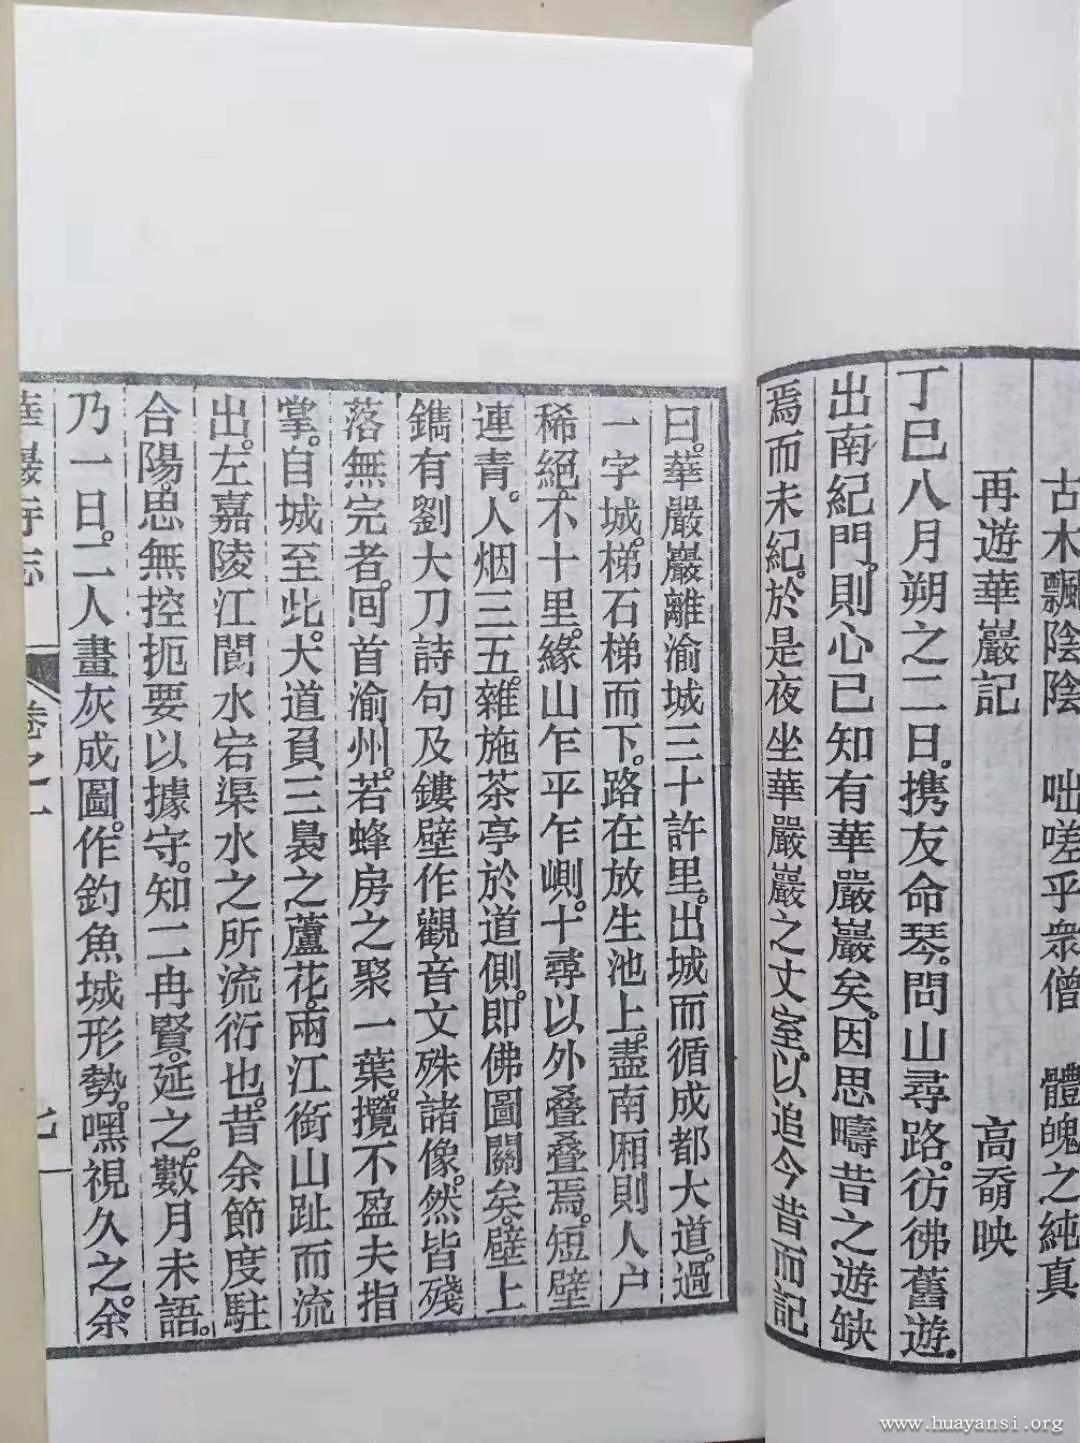 古木飄陰陰　咄嗟乎衆僧　體魄之純真
再遊華巖記　高奣映
丁巳八月朔之二日。携友命琴。問山尋路。彷彿舊遊。
出南紀門。則心已知有華嚴巖矣。因思疇昔之遊缺
焉而未紀。於是夜坐華嚴巖之丈室。以追今昔而記
曰。華嚴巖離渝城三十許里。出城而循成都大道。過
一字城。梯石梯而下。路在放生池上。盡南厢則人户
稀絕。不十里。緣山乍平乍峢。十尋以外叠叠焉。短壁
連青。人烟三五。雜施茶亭於道側。即佛圖關矣。壁上
鐫有劉大刀詩句及鏤壁作觀音文殊諸像。然皆殘
落無完者。囘首渝州。若蜂房之聚一葉。攬不盈夫指
掌。自城至此。大道負三裊之蘆花。兩江銜山趾而流
出。左嘉陵江閬水宕渠水之所流衍也。昔余節度駐
合陽。思無控扼要以據守。知二冉賢。延之。數月未語。
乃一日。二人畫灰成圖。作釣魚城形勢。嘿視久之。余
華嚴寺志　卷之一　七
www.huayansi.org